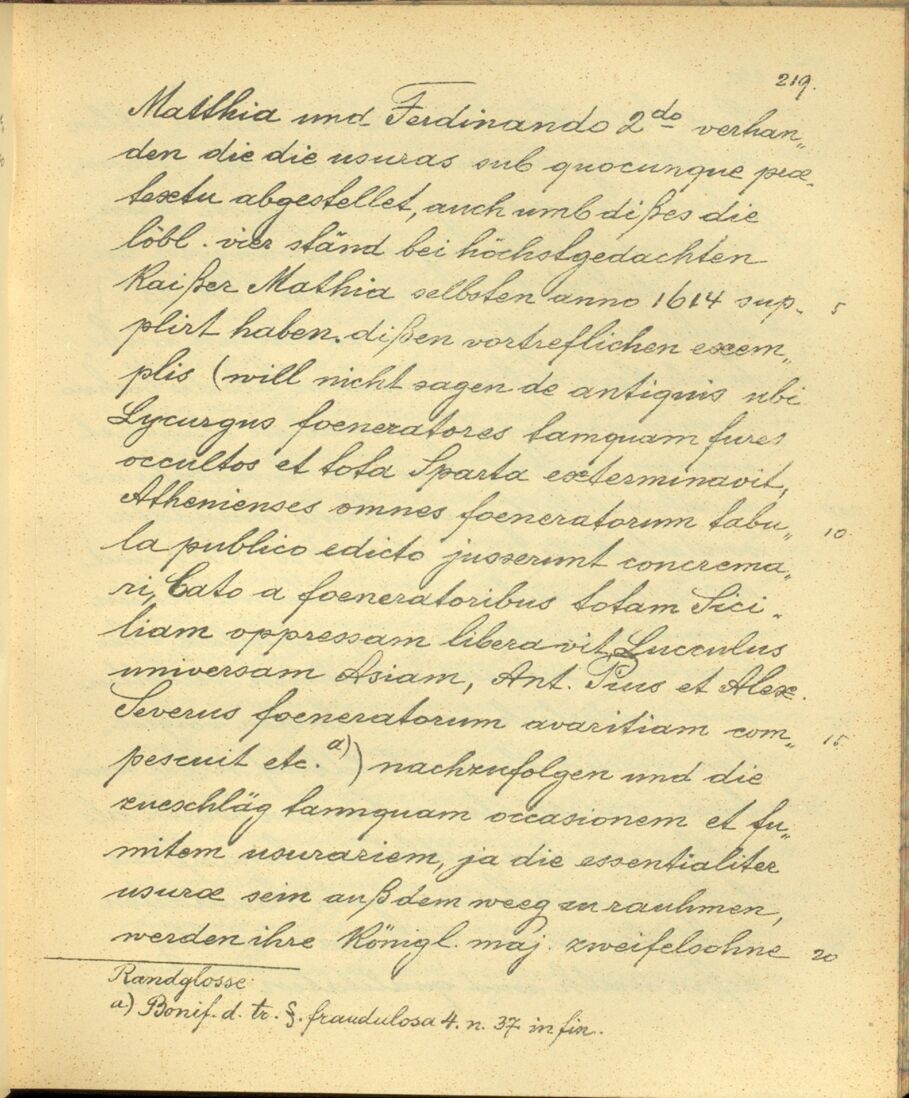 219.
Matthia und Ferdinando 2do verhan„
den die die usuras sub quocunque præ-
textu abgestellet, auch umb dißes die
löbl. vier ständ bei höchstgedachten
Kaißer Mathia selbsten anno 1614 sup- 5
plirt haben. dißen vortreflichen exem„
plis (will nicht sagen de antiquis ubi
Lycurgus foeneratores tamquam fures
occultos et tota Sparta exterminavit,
Athenienses omnes foeneratorum tabu„ 10
la publico edicto jusserunt concrema„
ri, Cato a foeneratoribus totam Sici„
liam oppressam libera vit, Lucculus
universam Asiam, Ant. Pius et Alex.
Severus foeneratorum avaritiam com„ 15
pescuit etc. a)) nachzufolgen und die
zueschläg tannquam occasionem et fu„
mitem usurariem, ja die essentialiter
usuræ sein auß dem weeg zu rauhmen,
werden ihre Königl. maj. zweifelsohne 20
Randglosse:
a) Bonif. d. tr. §. fraudulosa 4. n. 37 in fin.